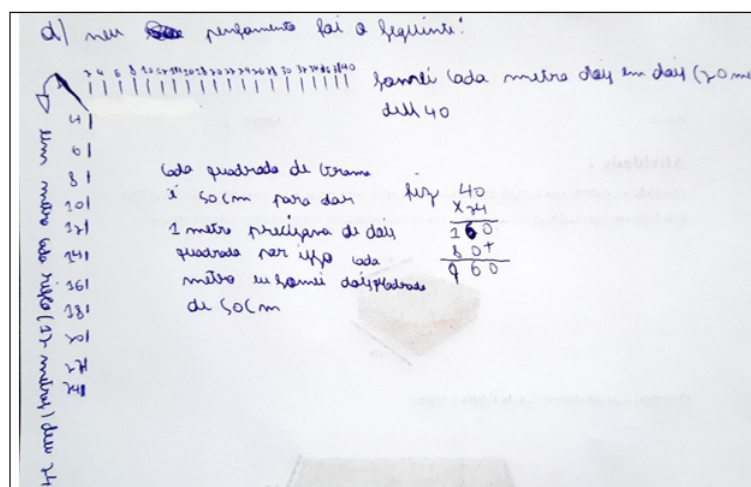 d) meu pensamento foi o seguinte:
2 4 6 8 10 12 14 16 18 20 22 24 26 28 30 32 34 36 38 40
somei cada metro dois em dois (20 me
deu 40
4
6
8
10
12
14
16
18
20
22
24
um metro cada risco (12 metros) deu 24
cada quadrado de Grama
é 50cm para dar
1 metro precisava de dois
quadrado por isso cada
metro eu somei dois quadrado
de 50cm
fiz 40
x24
160
80+
960